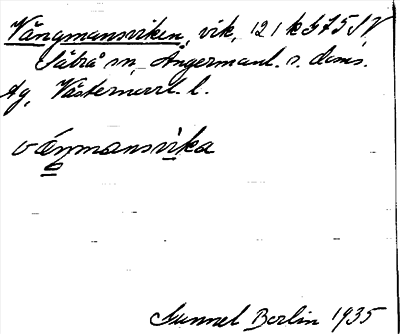 Vängmansviken, vik, 121 k 575 IV
Säbrå sn, Ångermanl. s. doms.
dg, Västernorrl. l.
væŋmansvika
Gunnel Berlin 1935